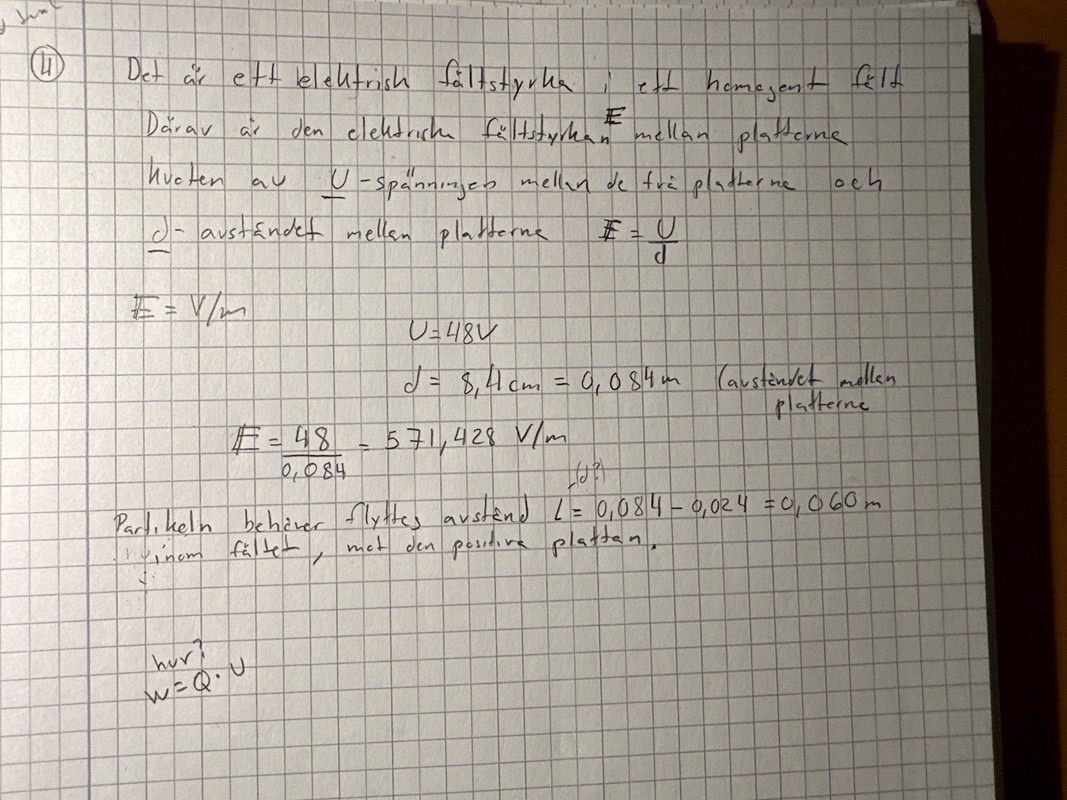 ④ Det är ett elektrisk fältstyrka i ett homogent fält
Därav är den elektrisk fältstyrkan E mellan plattorna
kvoten av U-spänningen mellan de två plattorna och
d- avståndet mellan plattorna E = U/d
E = V/m
U=48V
d = 8,4cm = 0,084m (avståndet mellan
plattorna
E = 48/0,084 = 571,428 V/m
(d?)
Partikeln behöver flyttas avstånd L = 0,084-0,024 = 0,060m
inom fältet, mot den positiva plattan.
hur?
W=Q·U